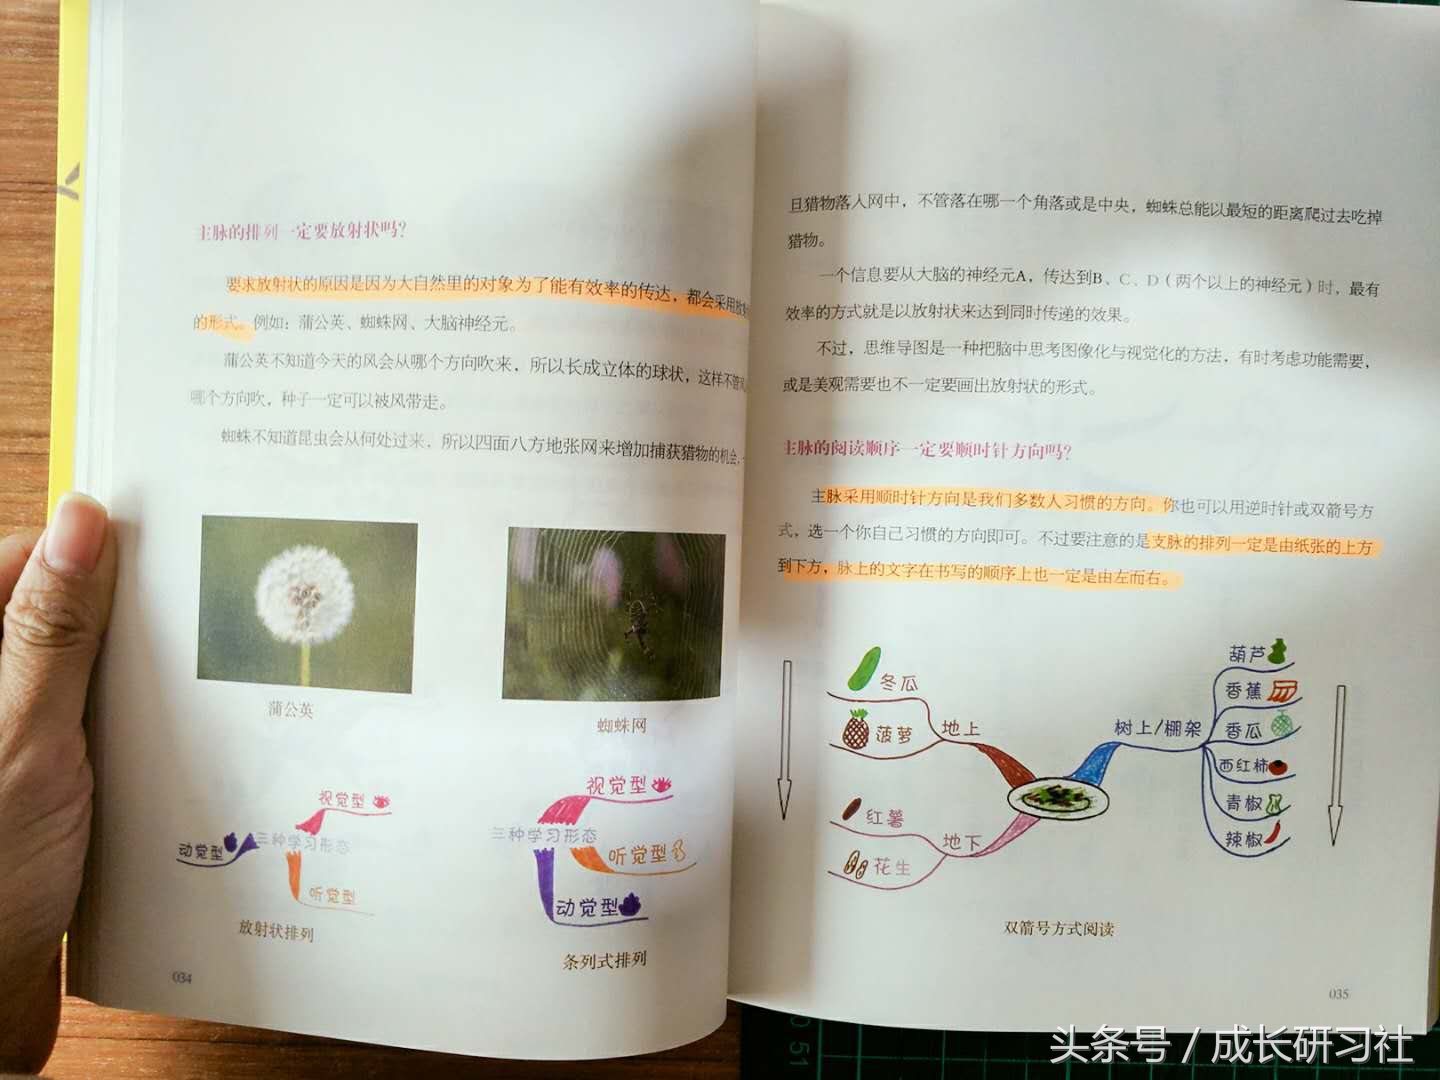 主脉的排列一定要放射状吗？
要求放射状的原因是因为大自然里的对象为了能有效率的传达，都会采用放
的形式。例如：蒲公英、蜘蛛网、大脑神经元。
蒲公英不知道今天的风会从哪个方向吹来，所以长成立体的球状，这样不管
哪个方向吹，种子一定可以被风带走。
蜘蛛不知道昆虫会从何处过来，所以四面八方地张网来增加捕获猎物的机会，
蒲公英
蜘蛛网
视觉型
动觉型
三种学习形态
听觉型
放射状排列
视觉型
三种学习形态
听觉型
动觉型
条列式排列
034
旦猎物落入网中，不管落在哪一个角落或是中央，蜘蛛总能以最短的距离爬过去吃掉
猎物。
一个信息要从大脑的神经元A，传达到B、C、D（两个以上的神经元）时，最有
效率的方式就是以放射状来达到同时传递的效果。
不过，思维导图是一种把脑中思考图像化与视觉化的方法，有时考虑功能需要，
或是美观需要也不一定要画出放射状的形式。
主脉的阅读顺序一定要顺时针方向吗？
主脉采用顺时针方向是我们多数人习惯的方向。你也可以用逆时针或双箭号方
式，选一个你自己习惯的方向即可。不过要注意的是支脉的排列一定是由纸张的上方
到下方，脉上的文字在书写的顺序上也一定是由左而右。
冬瓜
菠萝
地上
红薯
地下
花生
树上/棚架
葫芦
香蕉
香瓜
西红柿
青椒
辣椒
双箭号方式阅读
035
头条号 / 成长研习社